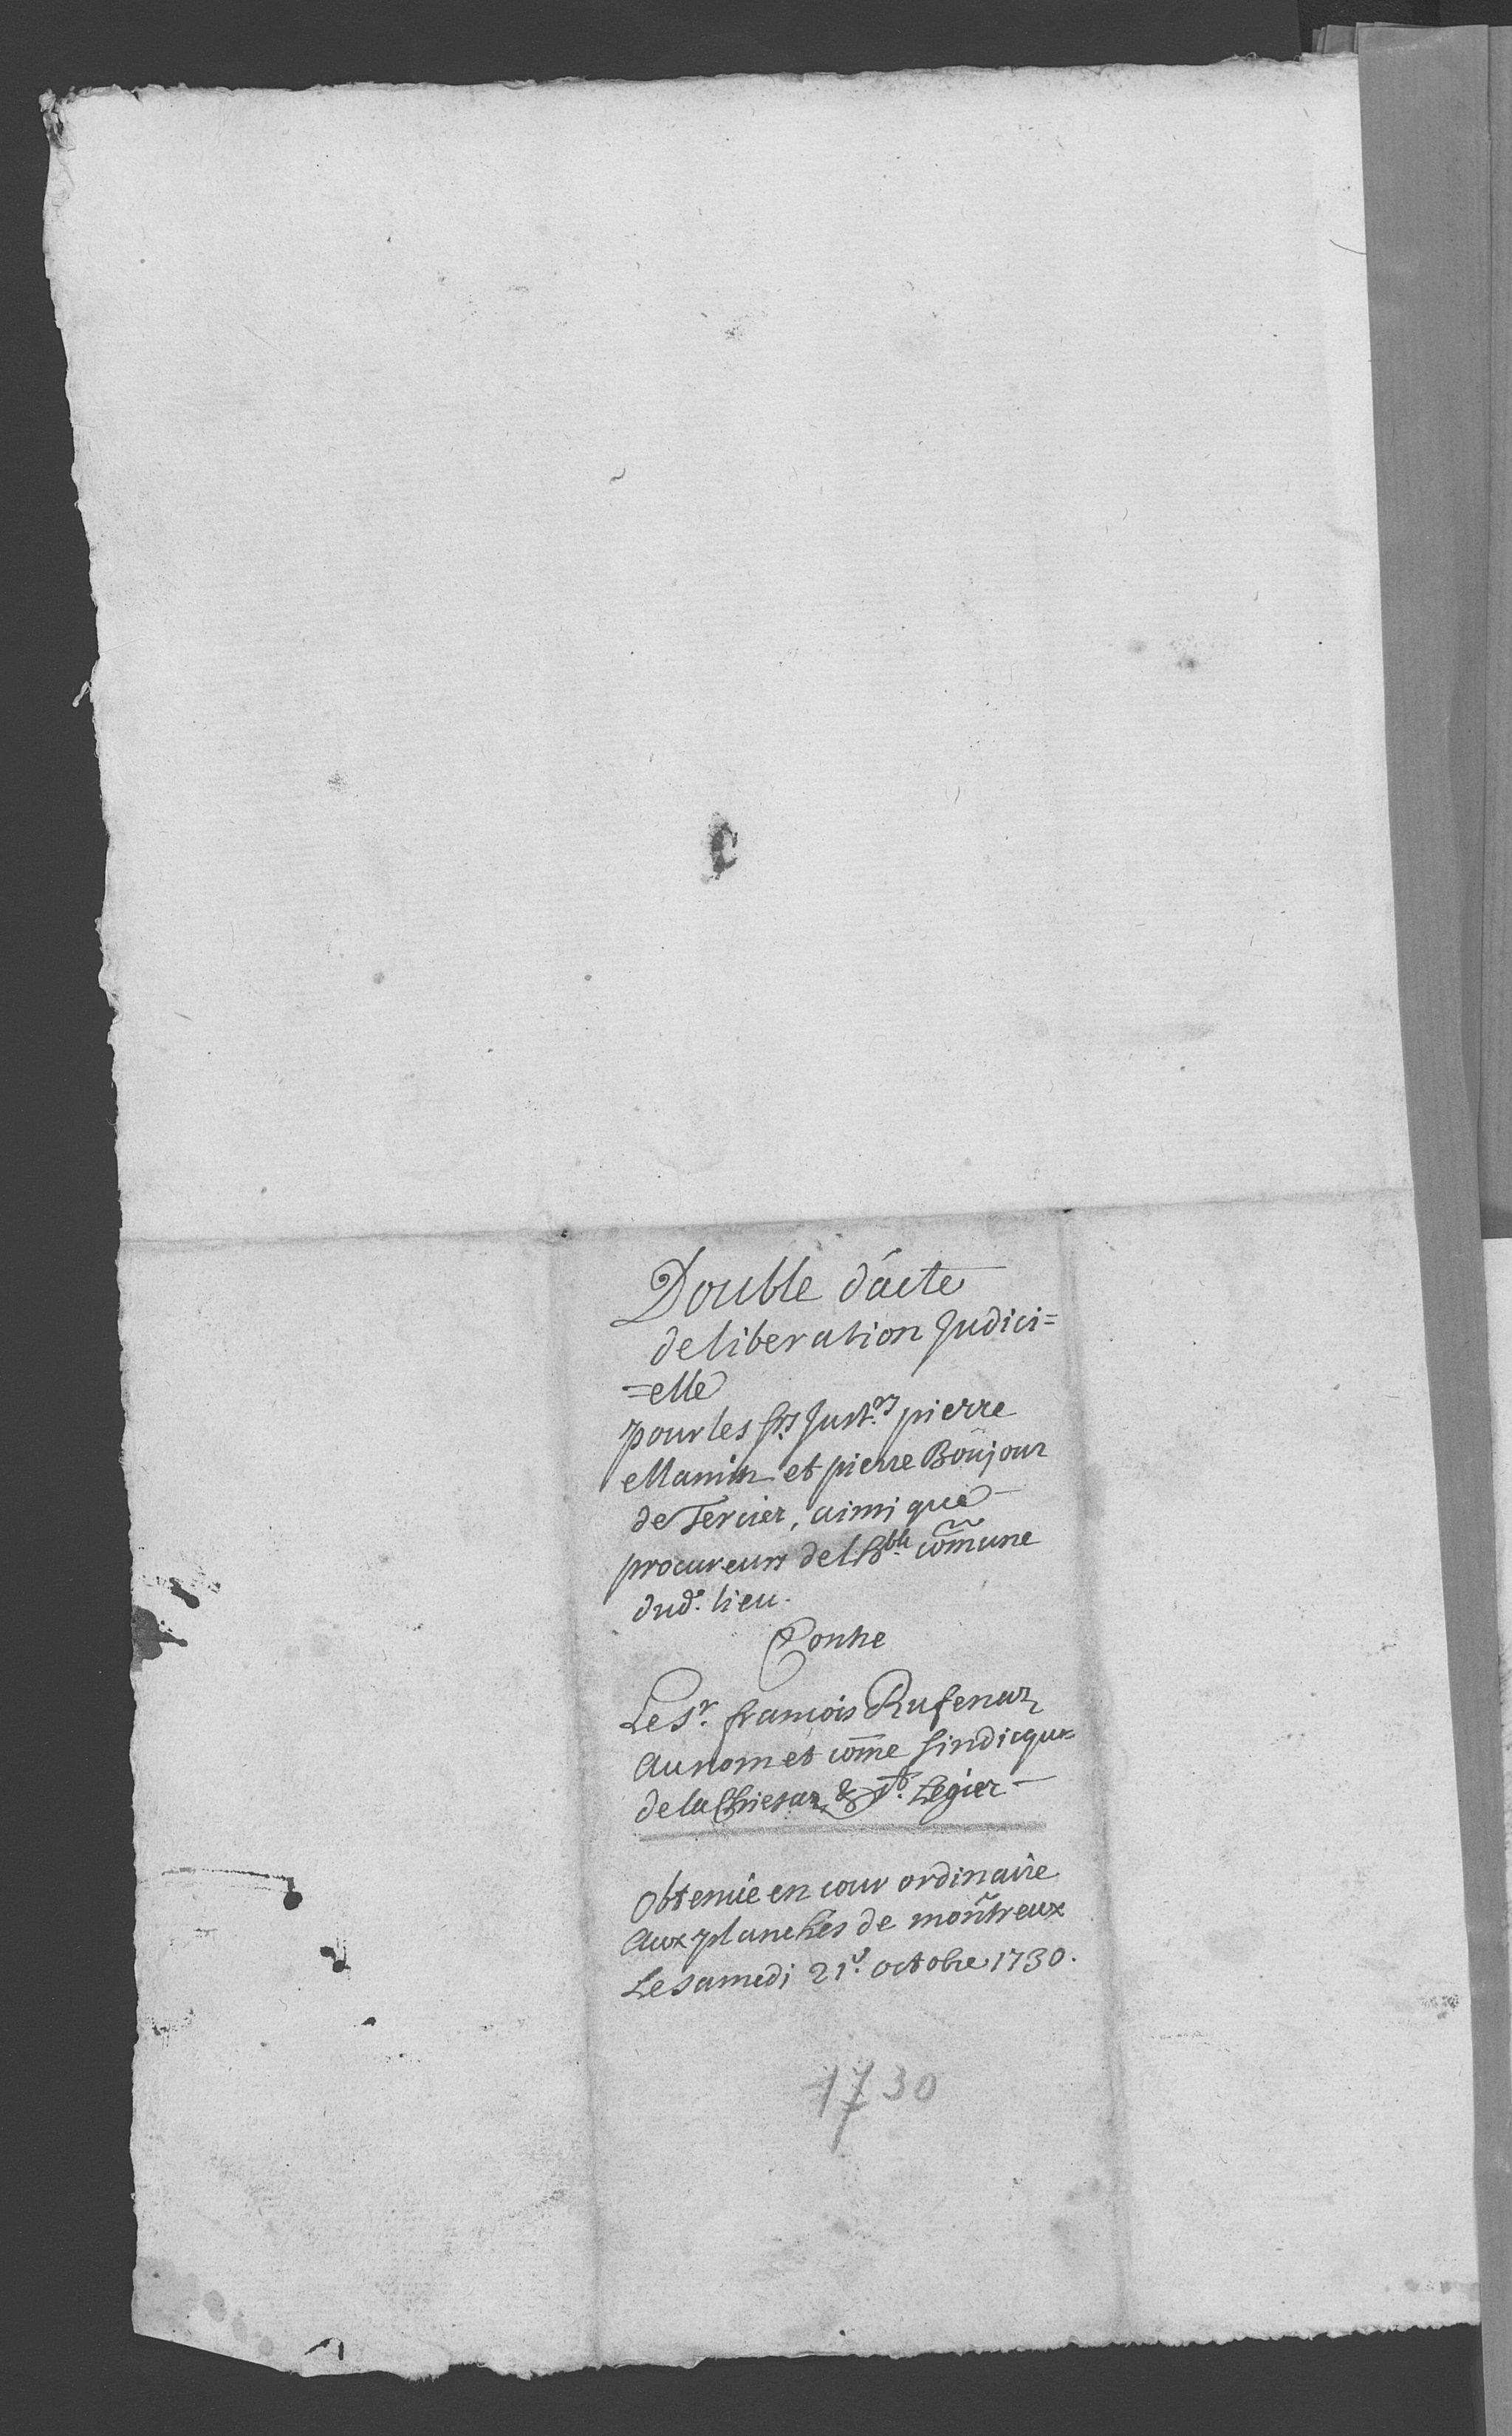 Double d'acte
de liberation Judici=
=elle
pour les srs Just.rs pierre
Mamin et pierre Boujour
de Tercier, ainsi que
procureurs de l'h.ble com̃une
dud.t lieu.
Contre
Le Sr. francois Rufenaz
Au nom et com̃e sindicque
de la Chiesaz & St. Legier
Obtenüe en cour ordinaire
Aux planches de montreux
Le samedi 21e. octobre 1730.
1730